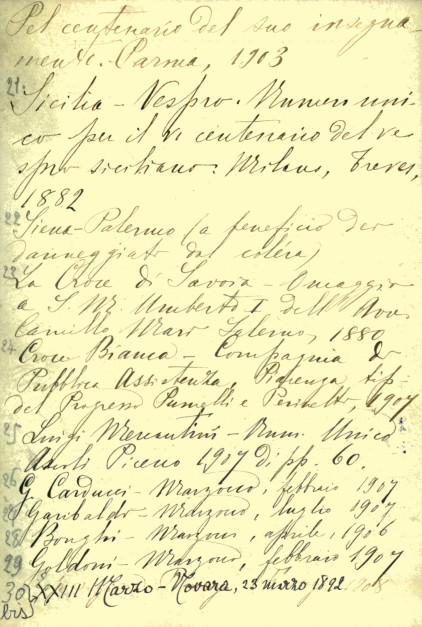 Pel centenario del suo insegna-
mento. Parma, 1903
21. Sicilia - Vespro. Numero uni-
co per il VI centenario del ve
spro siciliano: Milano, Treves,
1882
22 Siena-Palermo (a beneficio dei
danneggiati dal coléra)
23 La Croce di Savoia - Omaggio
a S. M. Umberto I dell' Avv.
Camillo Salerno, 1880
24 Croce Bianca - Compagnia di
Pubblica Assistenza, Piacenza, tip.
del Progresso e 1907
25 Luigi Mercantini - Num. Unico
Ascoli Piceno 1907 di pp. 60.
26 G. Carducci - Marzocco, febbraio 1907
27 Garibaldi - Marzocco, luglio 1907
28 Bonghi - Marzocco, aprile, 1906
29 Goldoni - Marzocco, febbraio 1907
30 XXIII Marzo - Novara, 23 marzo 1892
bis